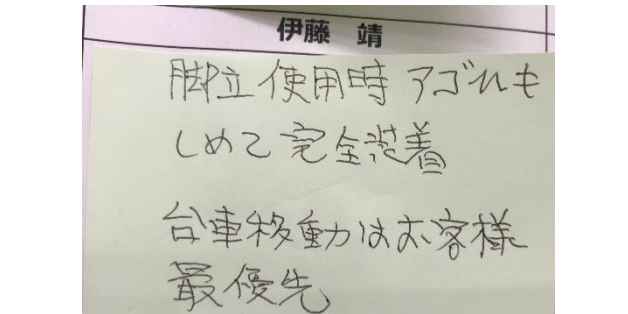 伊藤 靖
脚立使用時アゴひも
しめて完全装着
台車移動はお客様
最優先